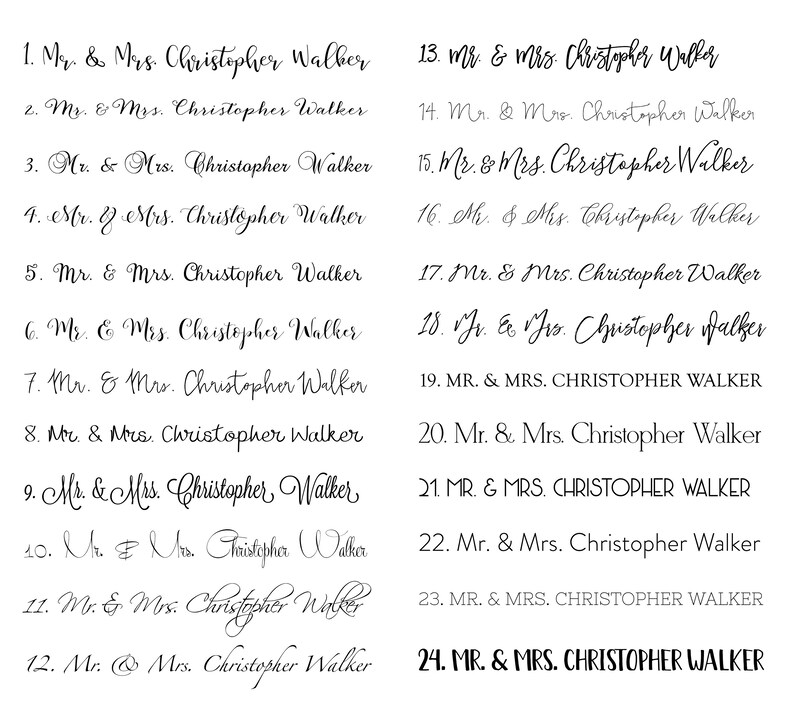 1. Mr. & Mrs. Christopher Walker
2. Mr. & Mrs. Christopher Walker
3. Mr. & Mrs. Christopher Walker
4. Mr. & Mrs. Christopher Walker
5. Mr. & Mrs. Christopher Walker
6. Mr. & Mrs. Christopher Walker
7. Mr. & Mrs. Christopher Walker
8. Mr. & Mrs. Christopher Walker
9. Mr. & Mrs. Christopher Walker
10. Mr. & Mrs. Christopher Walker
11. Mr. & Mrs. Christopher Walker
12. Mr. & Mrs. Christopher Walker
13. Mr. & Mrs. Christopher Walker
14. Mr. & Mrs. Christopher Walker
15. Mr. & Mrs. Christopher Walker
16. Mr. & Mrs. Christopher Walker
17. Mr. & Mrs. Christopher Walker
18. Mr. & Mrs. Christopher Walker
19. MR. & MRS. CHRISTOPHER WALKER
20. Mr. & Mrs. Christopher Walker
21. MR. & MRS. CHRISTOPHER WALKER
22. Mr. & Mrs. Christopher Walker
23. MR. & MRS. CHRISTOPHER WALKER
24. MR. & MRS. CHRISTOPHER WALKER